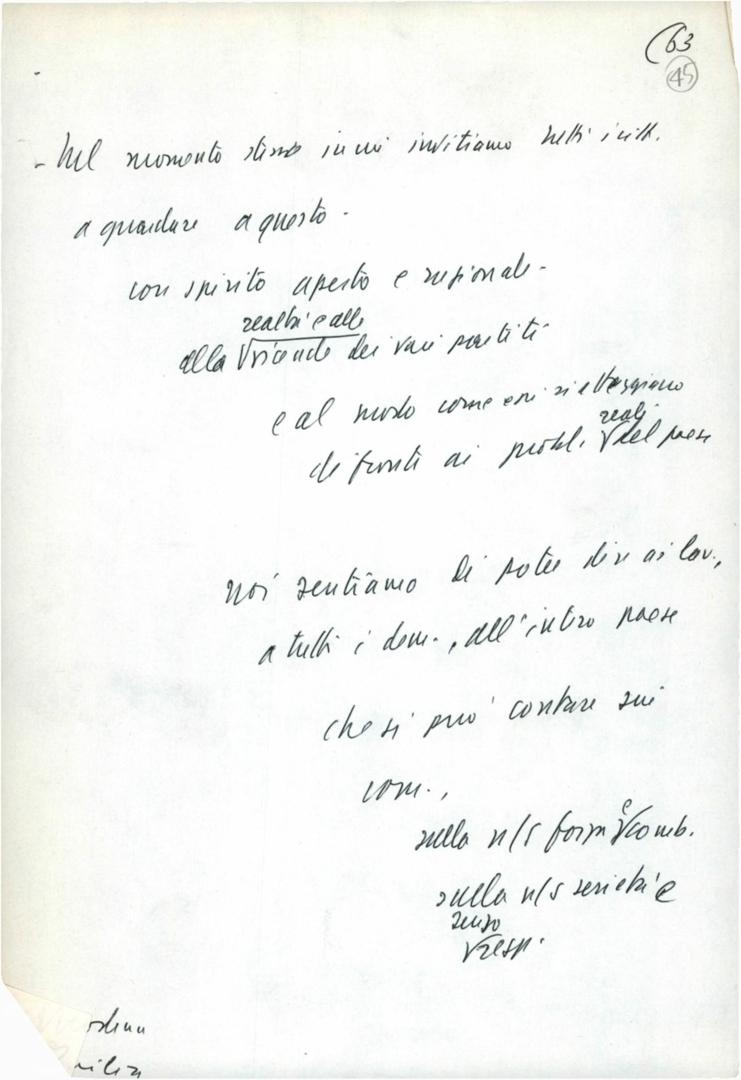 (63
45
- Nel momento stesso in cui invitiamo tutti i citt.
a guardare a questo -
con spirito aperto e
realtà e alle
alla vicende dei vari partiti
e al modo come essi si atteggiano
reali
di fronti ai probl. del paese
noi sentiamo di poter dire ai lav.,
a tutti i dem., all'intero paese
che si può contare sui
com.,
sulla n/s forza e comb.
sulla n/s serietà e
senso
resp.